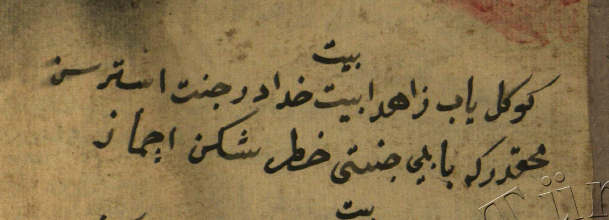 بيت
كوكل ياب زاهدا بيت خدادر جنت استرسن
محقدر كه بابلى جنتى خطر شكن اچماز
بيت